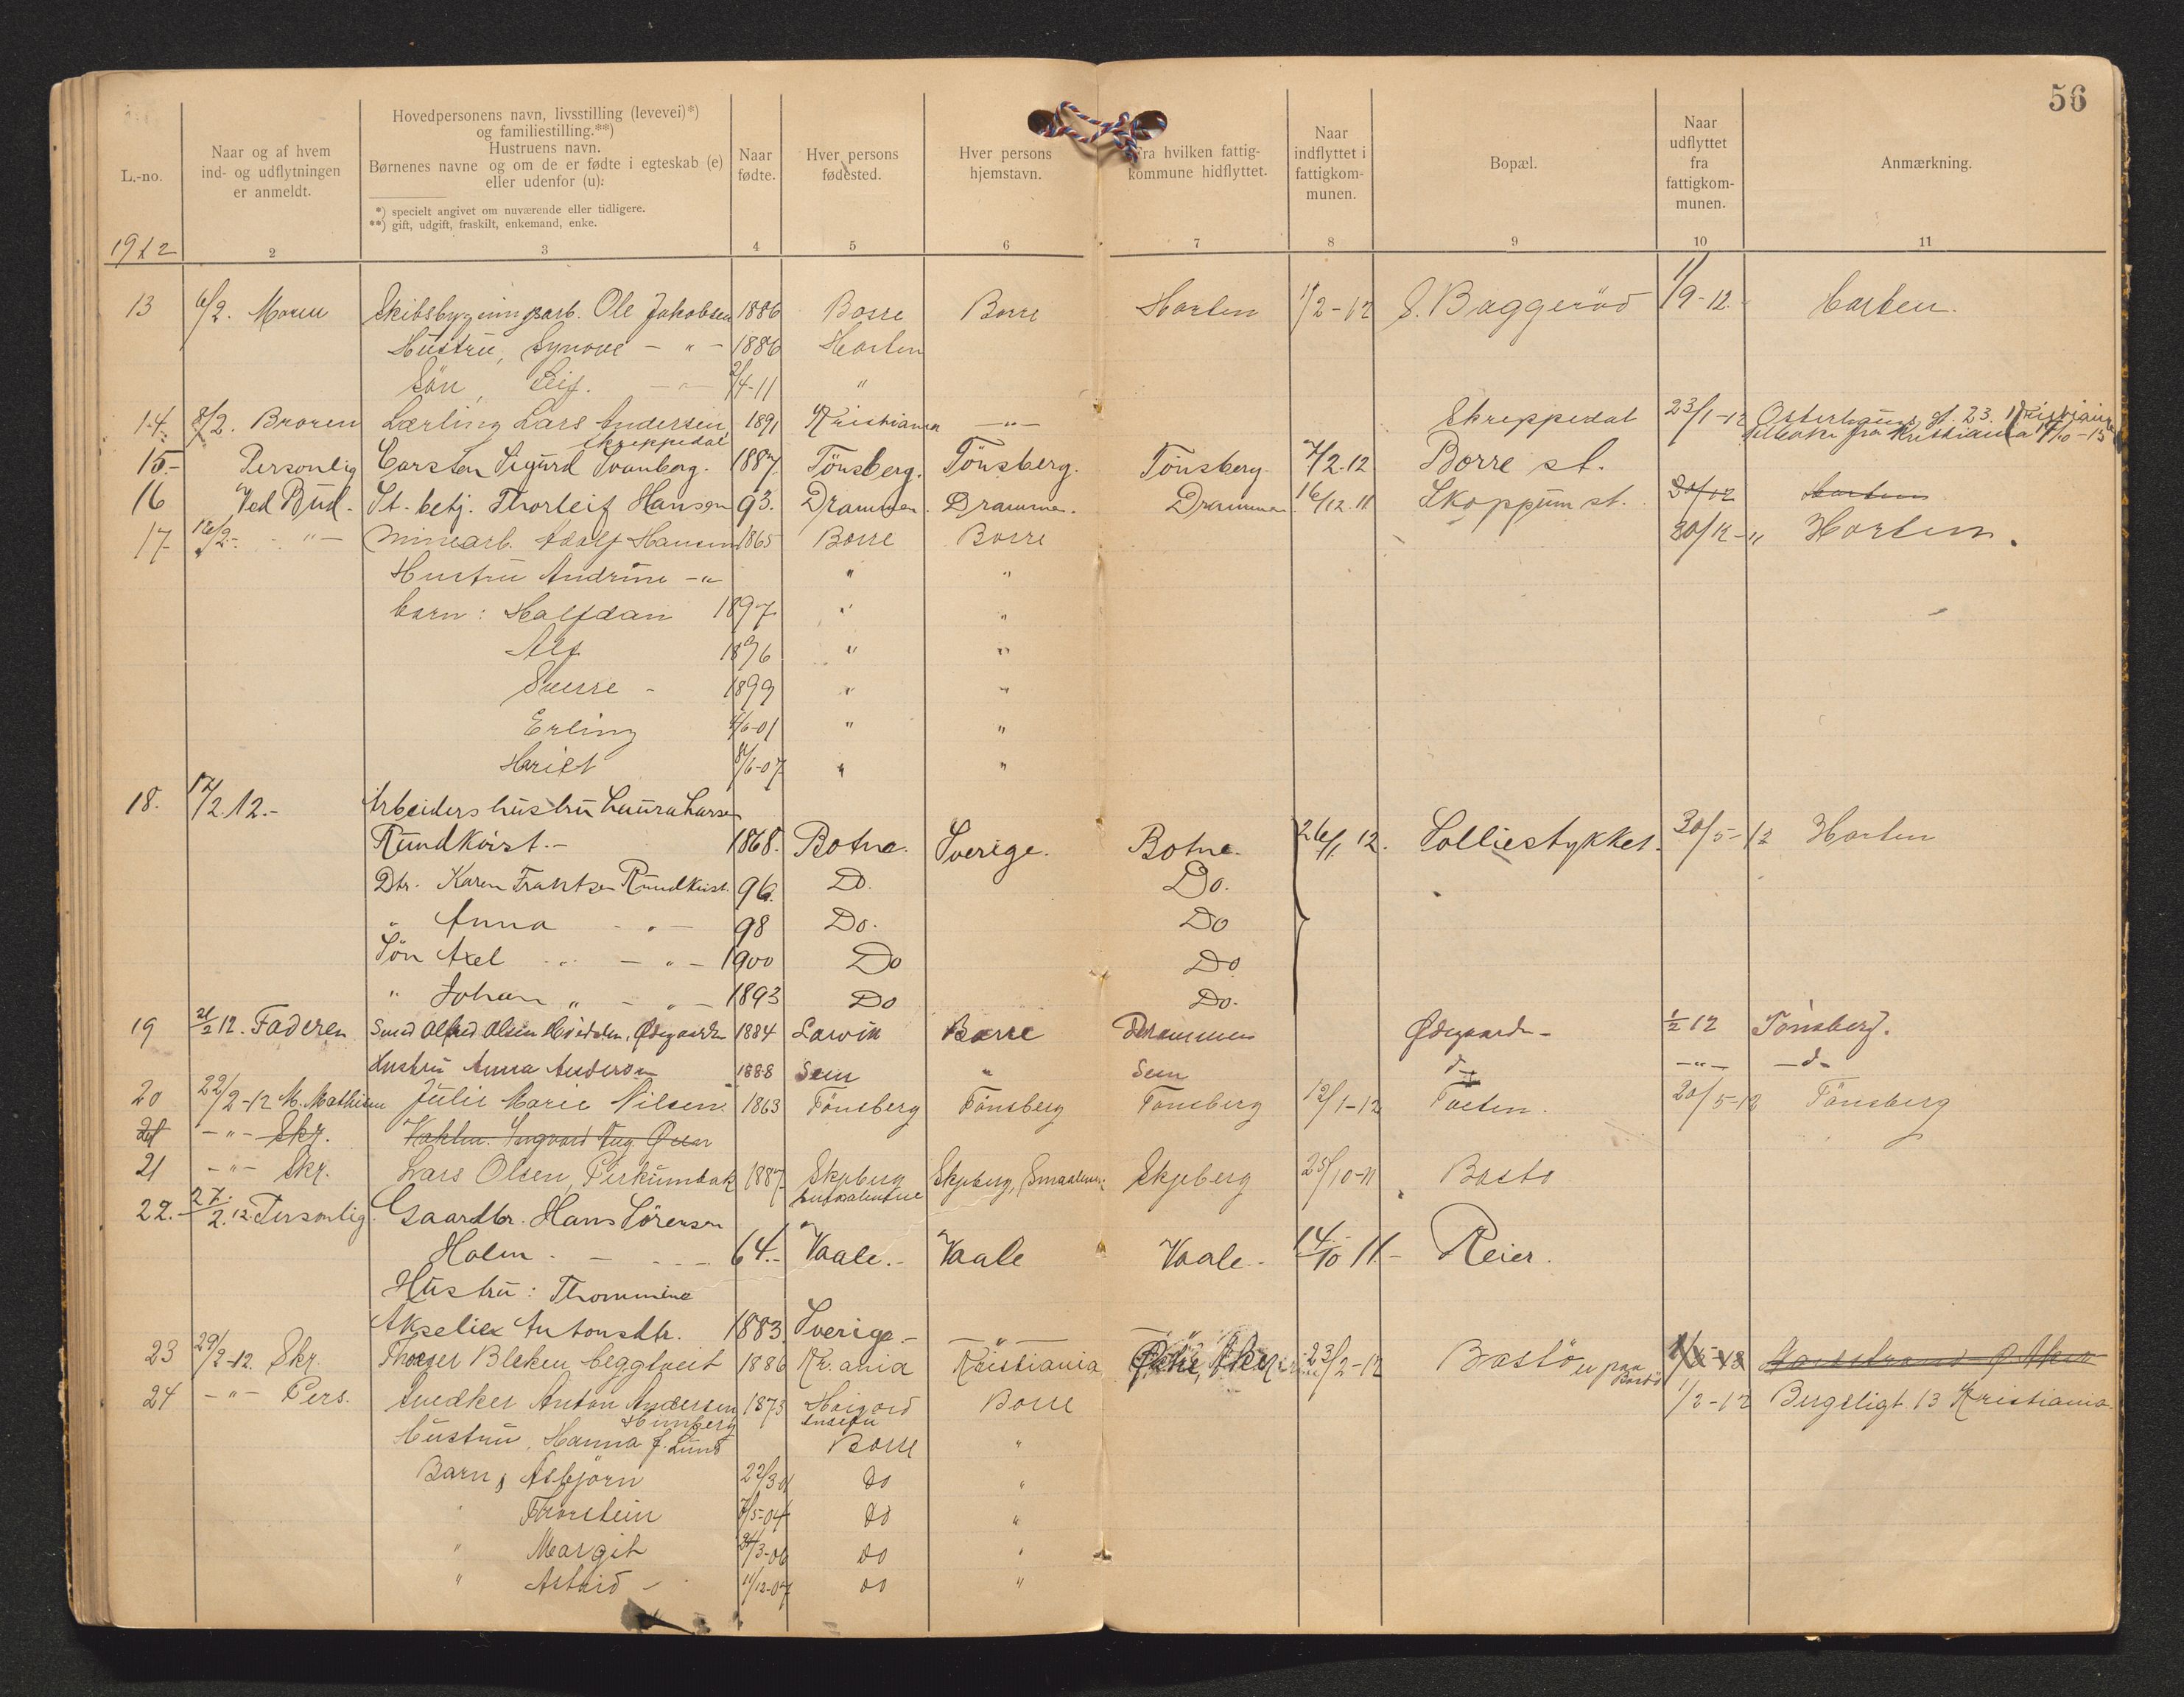 56
L.-no.
Naar og af hvem
ind- og udflytningen
er anmeldt.
Hovedpersonens navn, livsstilling (levevei)*)
og familiestilling.**)
Hustruens navn.
Børnenes navne og om de er fødte i egteskab (e)
eller udenfor (u):
*) specielt angivet om nuværende eller tidligere.
**) gift, udgift, fraskilt, enkemand, enke.
Naar
fødte.
Hver persons
fødested.
Hver persons
hjemstavn.
Fra hvilken fattig-
kommune hidflyttet.
Naar
indflyttet i
fattigkom-
munen.
Bopæl.
Naar
udflyttet
fra
fattigkom-
munen.
Anmærkning.
1912 2 3 4 5 6 7 8 9 10 11
13 6/2. Moren Skibsbygningsarb. Ole Jakobsen 1886 Borre Borre Horten 1/2-12 S. Baggerød 1/9-12. Horten.
Hustru, Synove - " - 1886 Horten
Søn, Leif. - " - 2/4-11 "
14. 8/2. Broren Lærling Lars Andersen 1891 Kristiania - " - Skreppedal 23/1-12 Osterhausgt. 23. Kristiania
Skreppedal tilbake fra Kristiania 14/10-15
15.- Personlig Carsten Sigurd Svanberg. 1887 Tönsberg. Tönsberg. Tönsberg. 7/2.12 Borre st.
16 Ved Bud. St. betj. Thorleif Hansen 93. Drammen. Drammen. Drammen 16/12.11 Skoppum st. Horten
17- 12/2- - " - Minearb. Adolf Hansen 1865 Borre Borre 30/12-" Horten.
Hustru Andrine - " " "
barn: Halfdan 1897 " "
Alf 1896 " "
Sverre - 1899 " "
Erling 4/6-01 " "
Hariet 8/6-07 " "
18. 17/2.12.- Arbeiders hustru Laura Larsen
Rundkvist.- 1868. Botne. Sverige. Botne. 26/1.12. Solliestykket. 30/5-12 Horten
Dtr. Karen Frantsen Rundkvist. 96. Do. Do.
" Anna - " - 98 Do. Do
Sön Axel " - " - 1900 Do Do
" Johan " - " - 1893 Do Do.
19 21/2 12. Faderen Smed Alfred Olsen Ødegaarden 1884 Larvik Borre Drammen Ødegaarden - 1/2 12 Tönsberg.
Hustru Anna Anderson 1888 Sem " Sem d- - " - - d -
20 22/2-12 M. Mathisen Julie Marie Nilsen. 1863 Tönsberg Tönsberg Tönsberg 12/1-12 Toeten. 20/5-12 Tönsberg
21 - " - Skr. Ingvard Aug. Olsen
21 - " - Skr. Lars Olsen, 1887 Skjeberg Skjeberg, Smaalenene Skjeberg 25/10-11 Basto
22. 27/2.12. Personlig. Gaardbr. Hans Sörensen
Holm. - 64.- Vaale.- Vaale Vaale.- 14/10 11.- Reier.
Hustru: Thommine
Akselie Antonsdtr. 1883 Sverige.-
23 29/2-12. Skr. 1886 Kr.ania Kristiania Aker 23/2-12 Bastö er paa Bastö
24 - " - Pers. Snedker Anton Andersen 1873 Borre 1/3-12 Bergsligt. 13 Kristiania.
Hustru, Hanna J. Lund Borre "
Barn, Asbjörn 22/3-01 do "
" Thorstein 7/5-04 do "
" Margit 24/3-06 do "
" Astrid - 11/12-07 do "